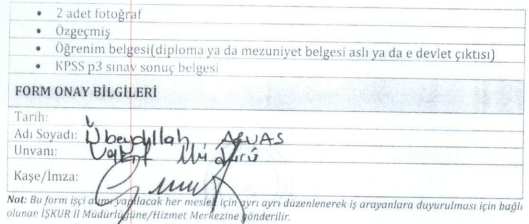 • 2 adet fotoğraf
• Özgeçmiş
• Öğrenim belgesi(diploma ya da mezuniyet belgesi aslı ya da e devlet çıktısı)
• KPSS p3 sınav sonuç belgesi
FORM ONAY BİLGİLERİ
Tarih:
Adı Soyadı: Übeydullah
Unvanı: Müdürü
Kaşe/İmza:
Not: Bu form işçi alımı yapılacak her meslek için ayrı ayrı düzenlenerek iş arayanlara duyurulması için bağlı
olunan İŞKUR İl Müdürlüğüne/Hizmet Merkezine gönderilir.